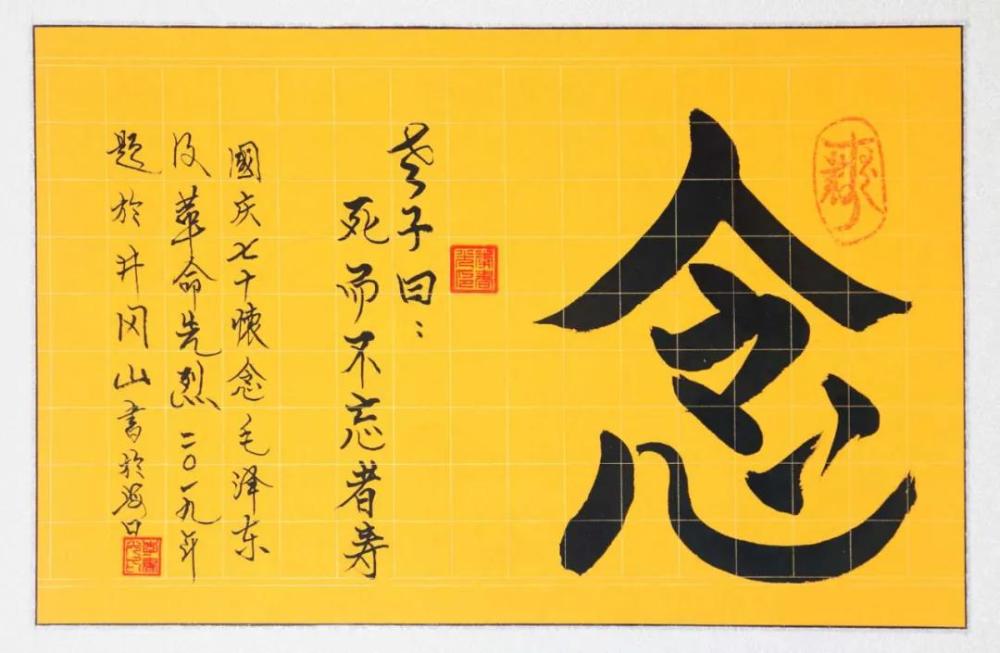 念
老子曰：
死而不忘者寿
國庆七十怀念毛泽东
及革命先烈二〇一九年
题於井冈山書於海口